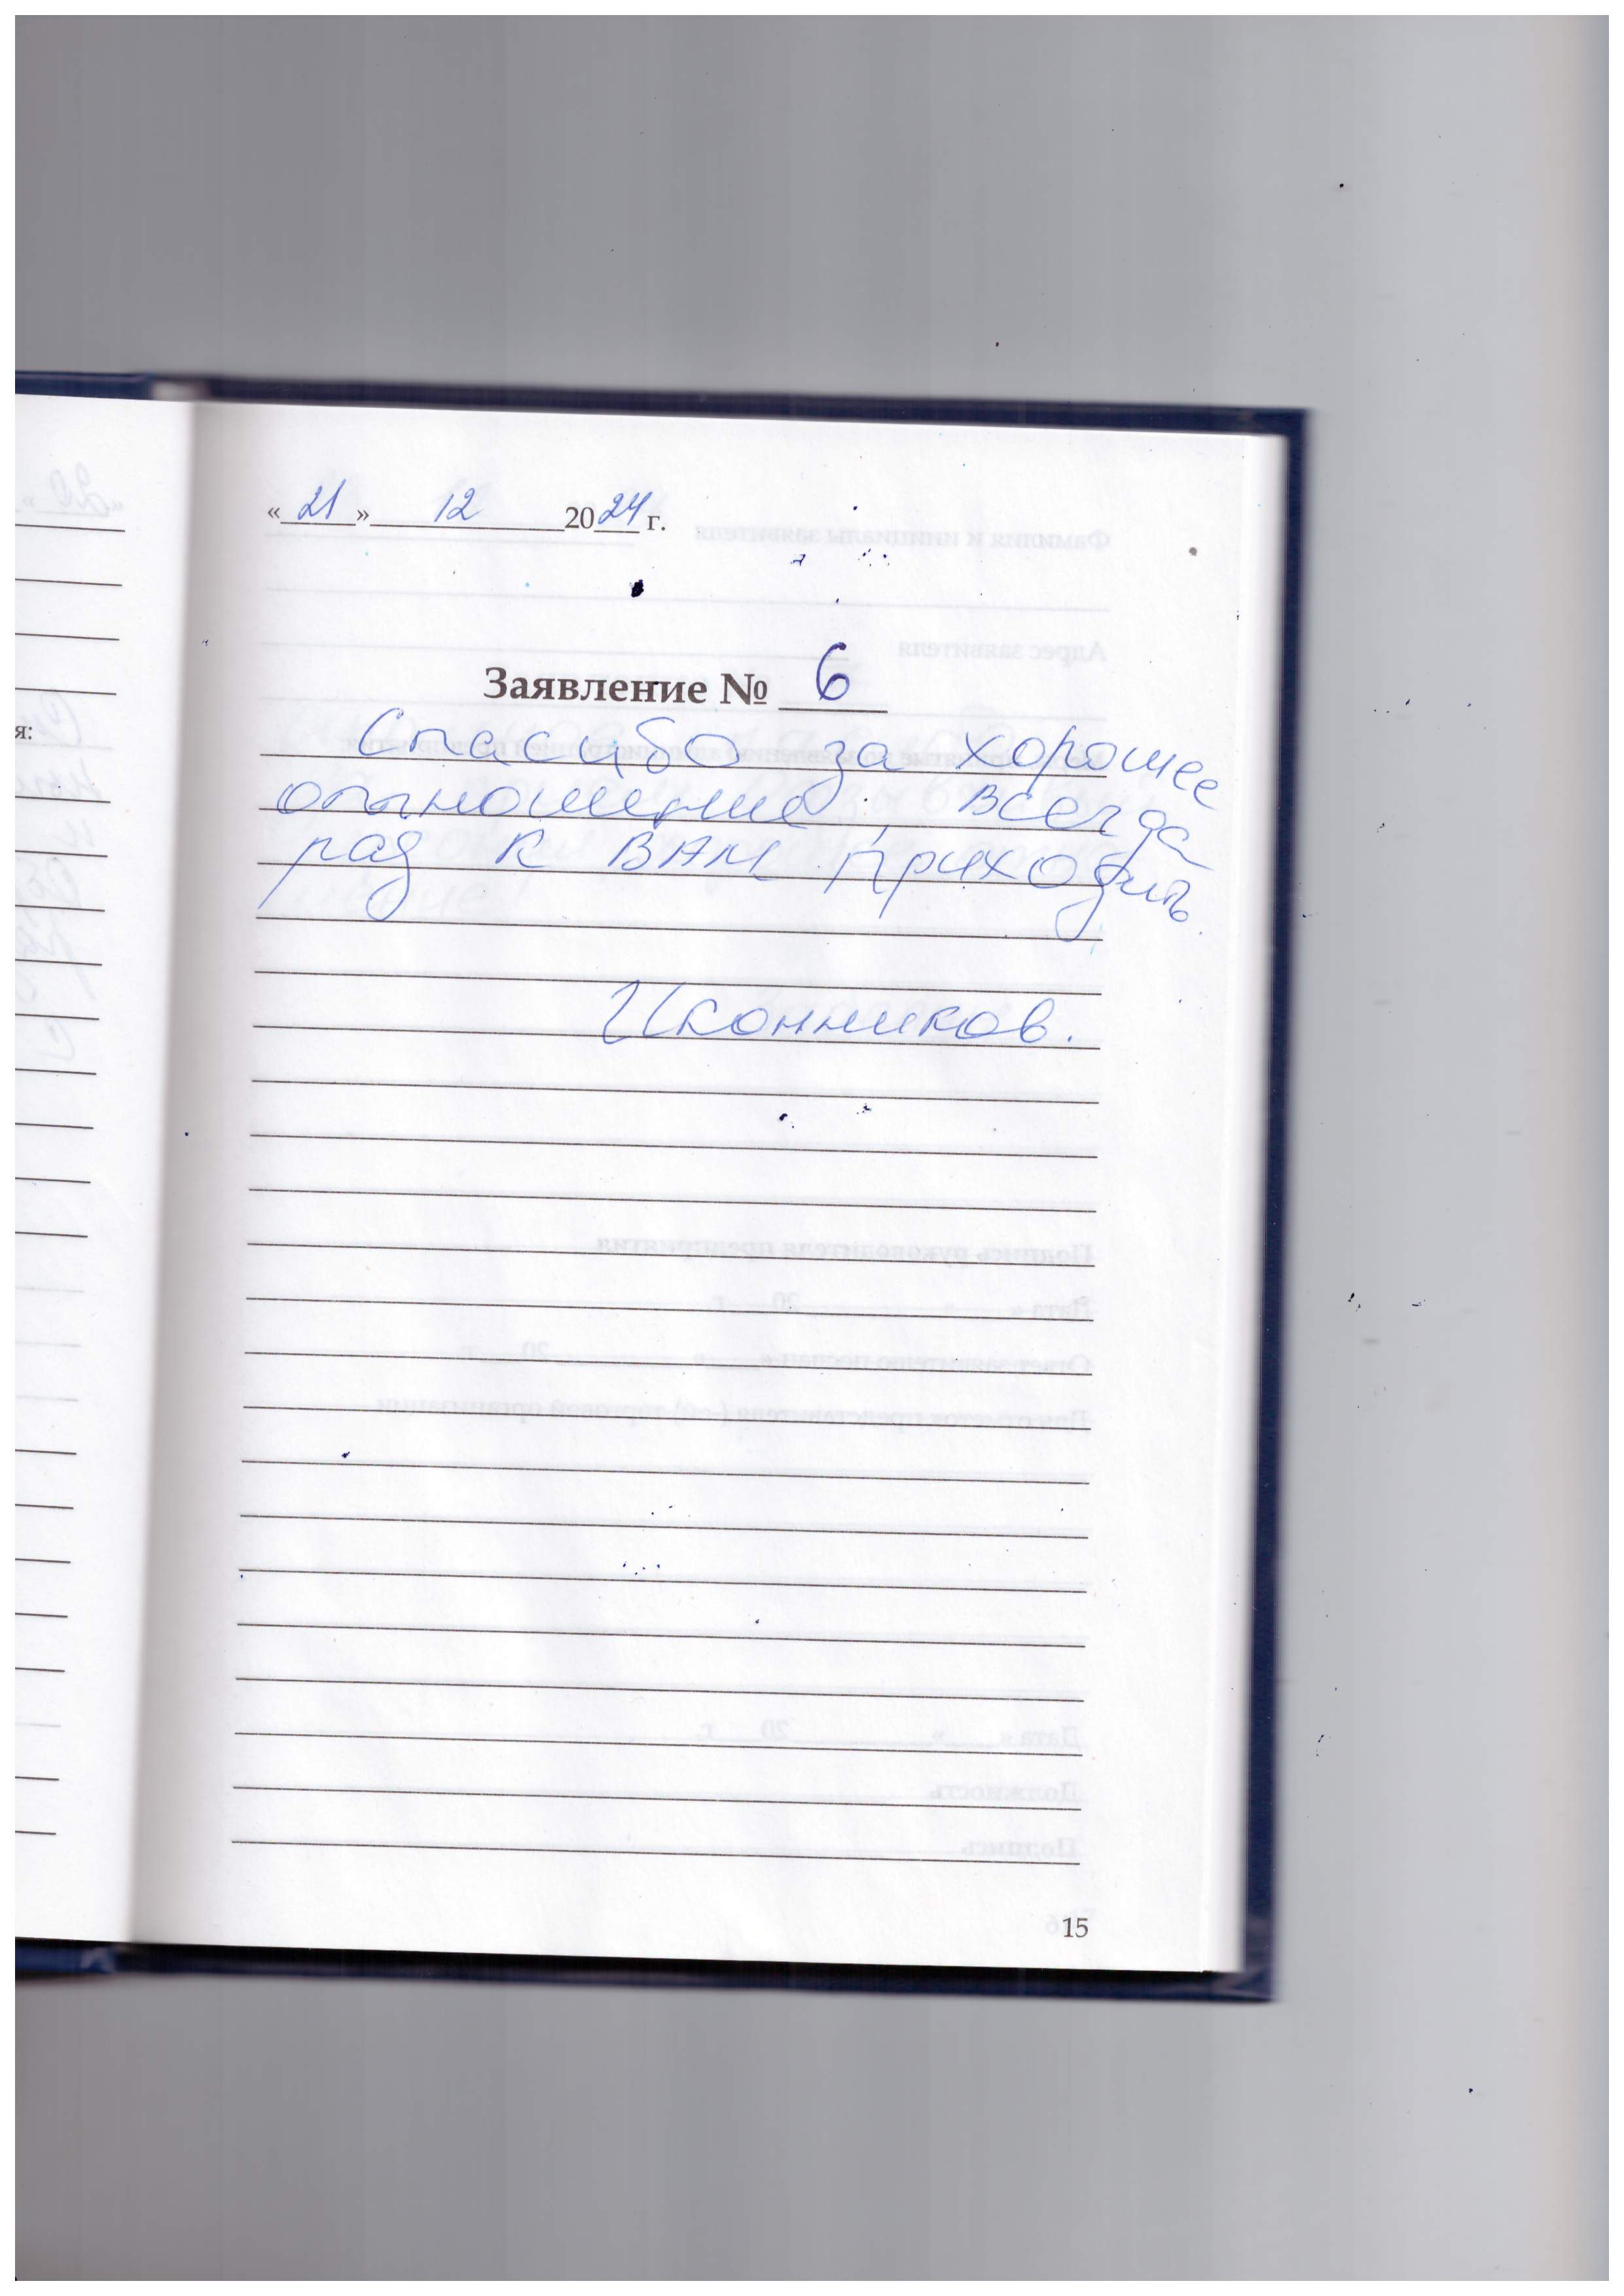 «21» 12 2024 г.
я:
Заявление № 6
Спасибо за хорошее
отношение, всегда
рад к ВАМ приходить.
Иконников.
15